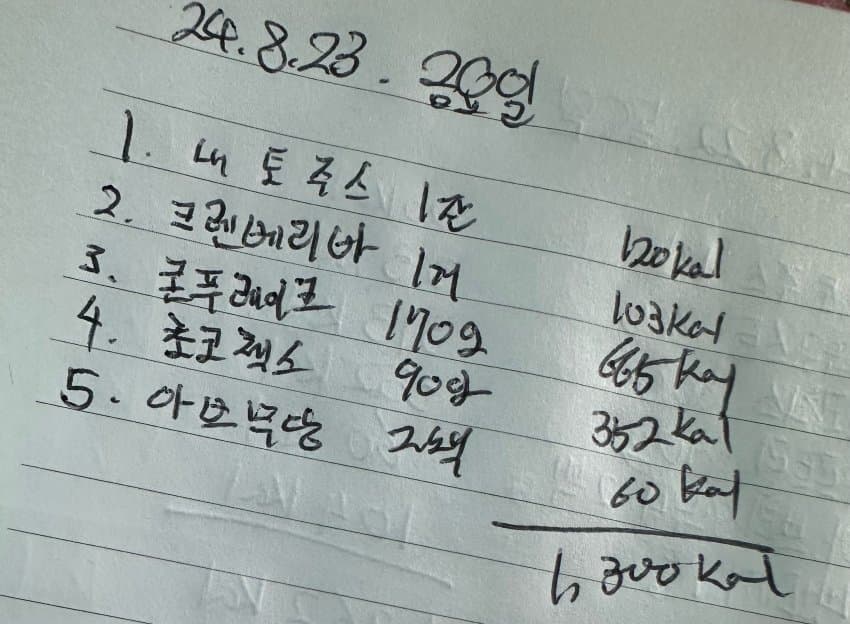 24.8.23. 금요일
1. 내 토 주스 1잔 120kal
2. 크렌베리바 1개 103kal
3. 콘푸레이크 170g 665kal
4. 초코첵스 90g 352kal
5. 아브무당 2 60kal
1,300kal